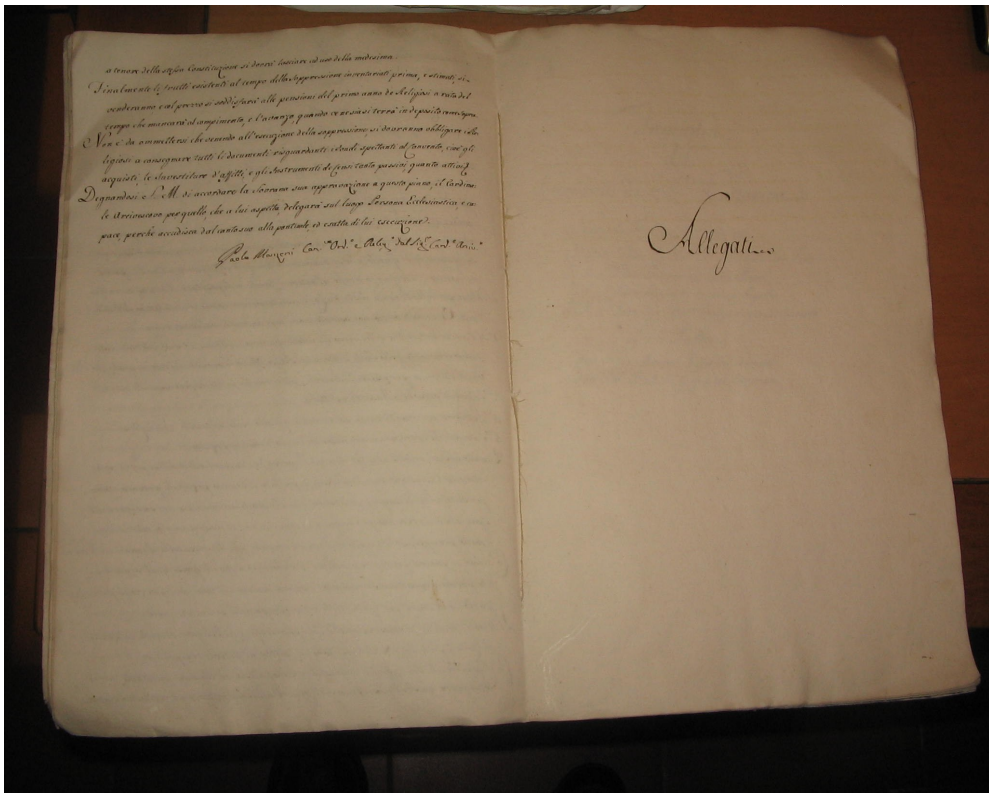 a tenore della stessa Constituzione si dovrà lasciare ad uso della medesima.
Finalmente li frutti esistenti al tempo della soppressione inventariati prima, e stimati, si
venderanno e col prezzo si soddisfarà alle pensioni del primo anno de Religiosi a rata del
tempo che mancarà al compimento, e l'avanzo, quando ce ne sia si terrà in deposito come sopra.
Non è da ommettersi che venendo all'esecuzione della soppressione si dovranno obbligare i Re-
ligiosi a consegnare tutti li documenti risguardanti i fondi spettanti al Convento, cioè gli
acquisti, le Investiture d'affitti, e gli Instrumenti di Censi tanto passivi, quanto attivi.
Degnandosi V. M. di accordare la Sovrana sua approvazione a questo piano, il Cardina-
le Arcivescovo per quello, che a lui aspetta delegarà sul luogo Persona Ecclesiastica, e ca-
pace, perchè accudisca dal canto suo alla pontuale, ed esatta di lui esecuzione.
Paolo Manzoni Can.co Ord.o e
Allegati